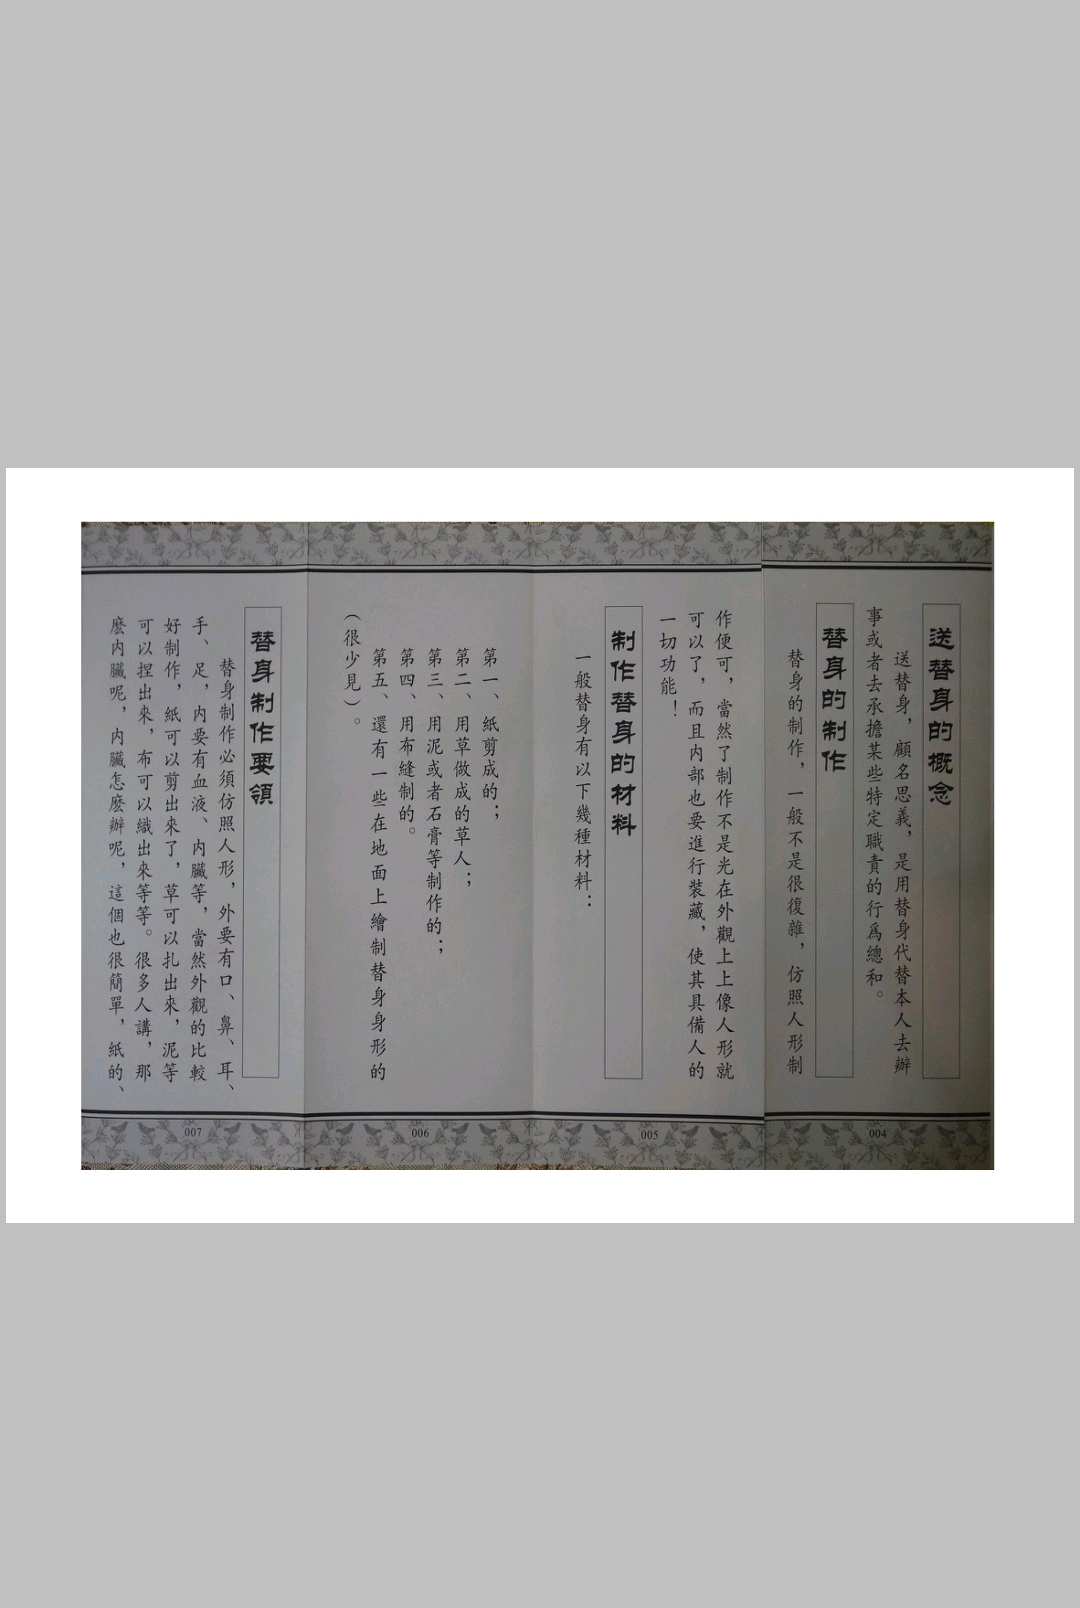 送替身的概念
送替身，顧名思義，是用替身代替本人去辦
事或者去承擔某些特定職責的行爲總和。
替身的制作
替身的制作，一般不是很復雜，仿照人形制
004
作便可，當然了制作不是光在外觀上上像人形就
可以了，而且内部也要進行裝藏，使其具備人的
一切功能！
制作替身的材料
一般替身有以下幾種材料：
005
第一、紙剪成的；
第二、用草做成的草人；
第三、用泥或者石膏等制作的；
第四、用布縫制的。
第五、還有一些在地面上繪制替身身形的
（很少見）。
006
替身制作要領
替身制作必須仿照人形，外要有口、鼻、耳、
手、足，内要有血液、内臟等，當然外觀的比較
好制作，紙可以剪出來了，草可以扎出來，泥等
可以捏出來，布可以織出來等等。很多人講，那
麽内臟呢，内臟怎麽辦呢，這個也很簡單，紙的、
007